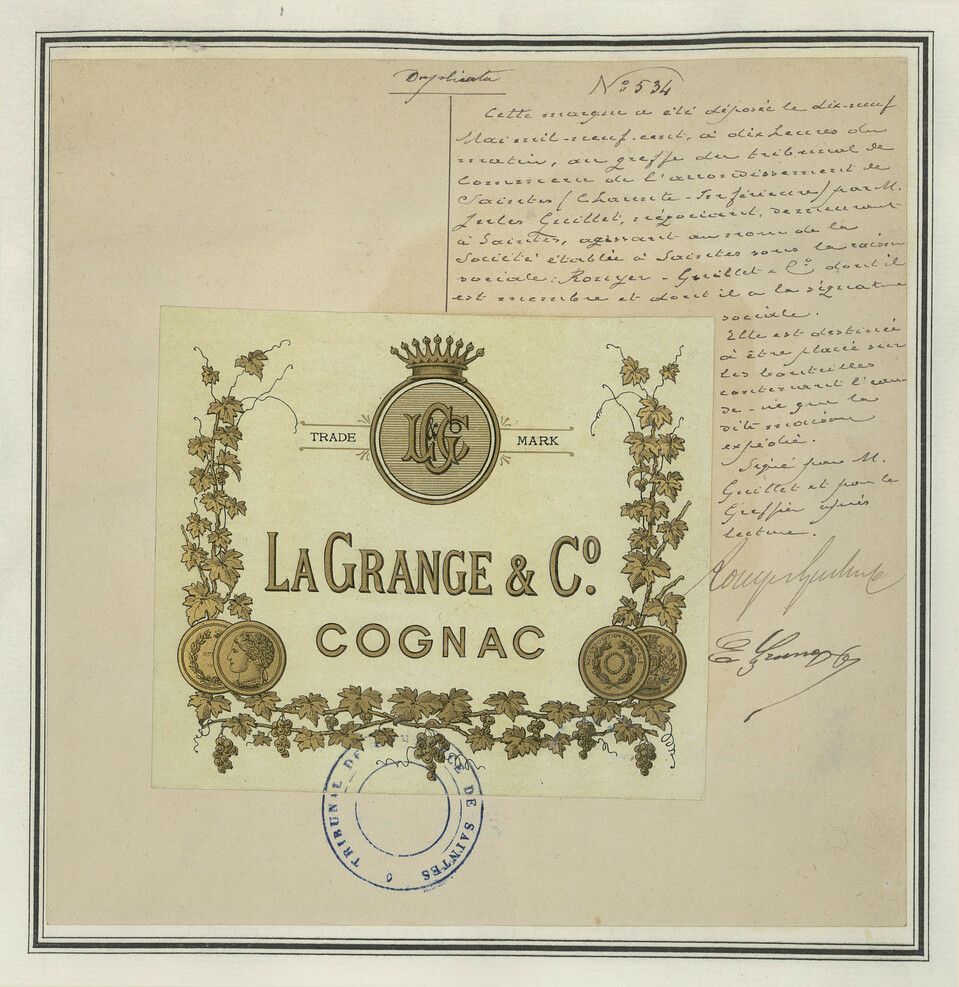 Duplicata
Nº 534
Cette marque a été déposée le dix-neuf
Mai mil-neuf-cent, à dix heures du
matin, au greffe du tribunal de
Commerce de l'arrondissement de
Saintes (Charente-Inférieure) par M.
Jules Guillet, négociant, demeurant
à Saintes, agissant au nom de la
Société établie à Saintes sous la raison
sociale: Rouyer-Guillet & Cº dont il
est membre et dont il a la signature
sociale.
Elle est destinée
à être placée sur
les bouteilles
contenant l'eau-
de-vie que la
dite maison
expédie.
Signé par M.
Guillet et par le
Greffier après
lecture.
Rouyer Guillet & Cº
TRADE MARK
LGCº
LAGRANGE & Cº
COGNAC
TRIBUNAL DE COMMERCE DE SAINTES